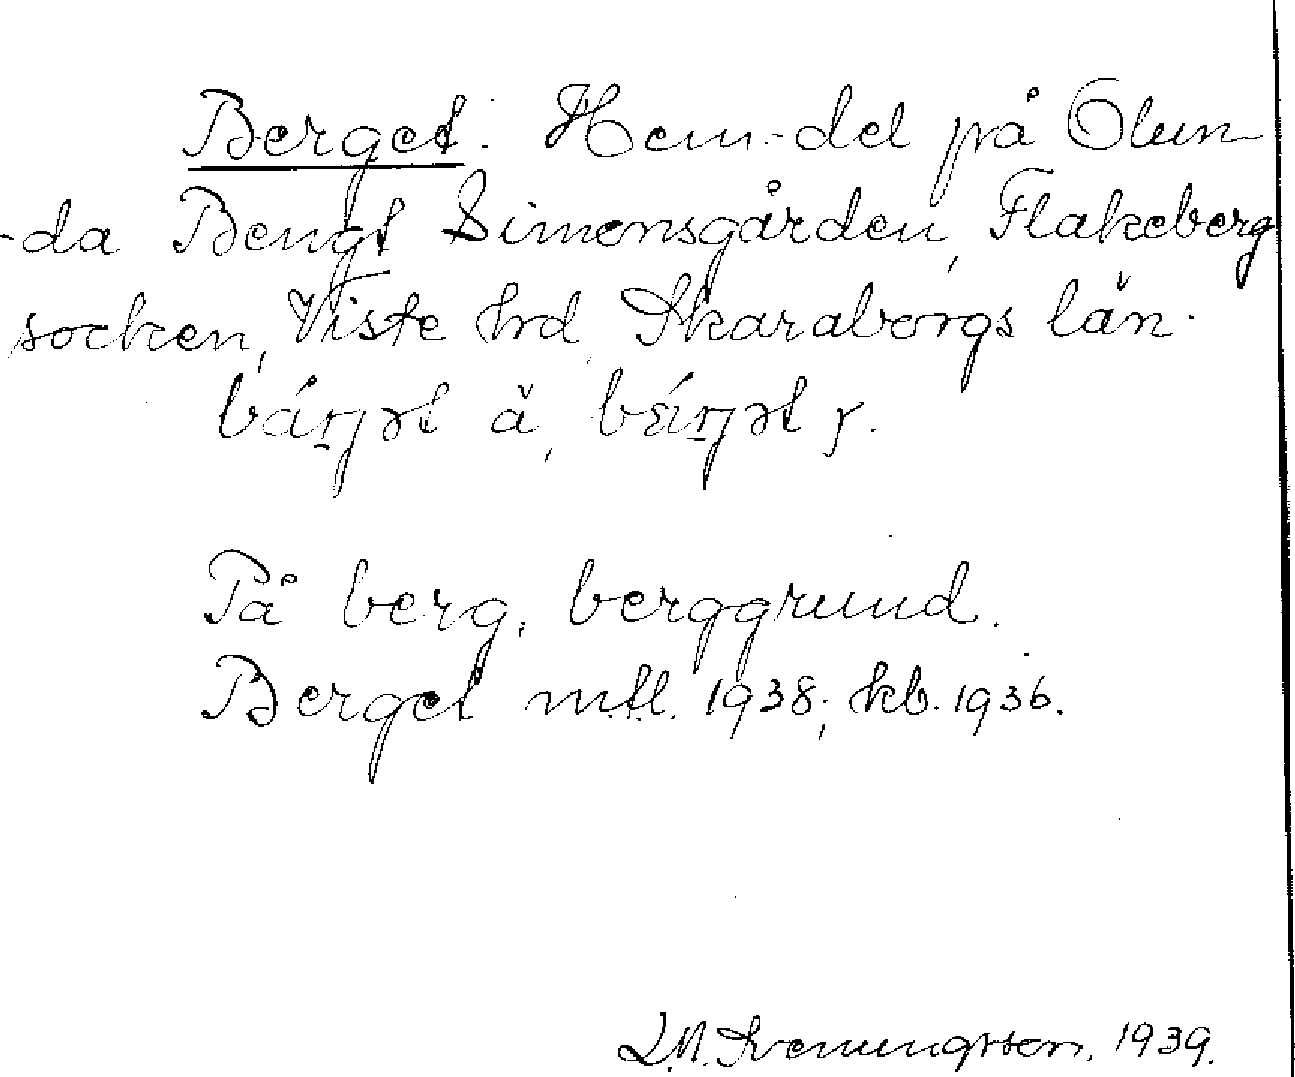 Berget. Hem.-del på Olun-
-da Bengt Simonsgården, Flakeberg
socken, Viste hrd, Skaraborgs län.
ă,
På berg, berggrund.
Berget mtl. 1938; kb. 1936.
1939.